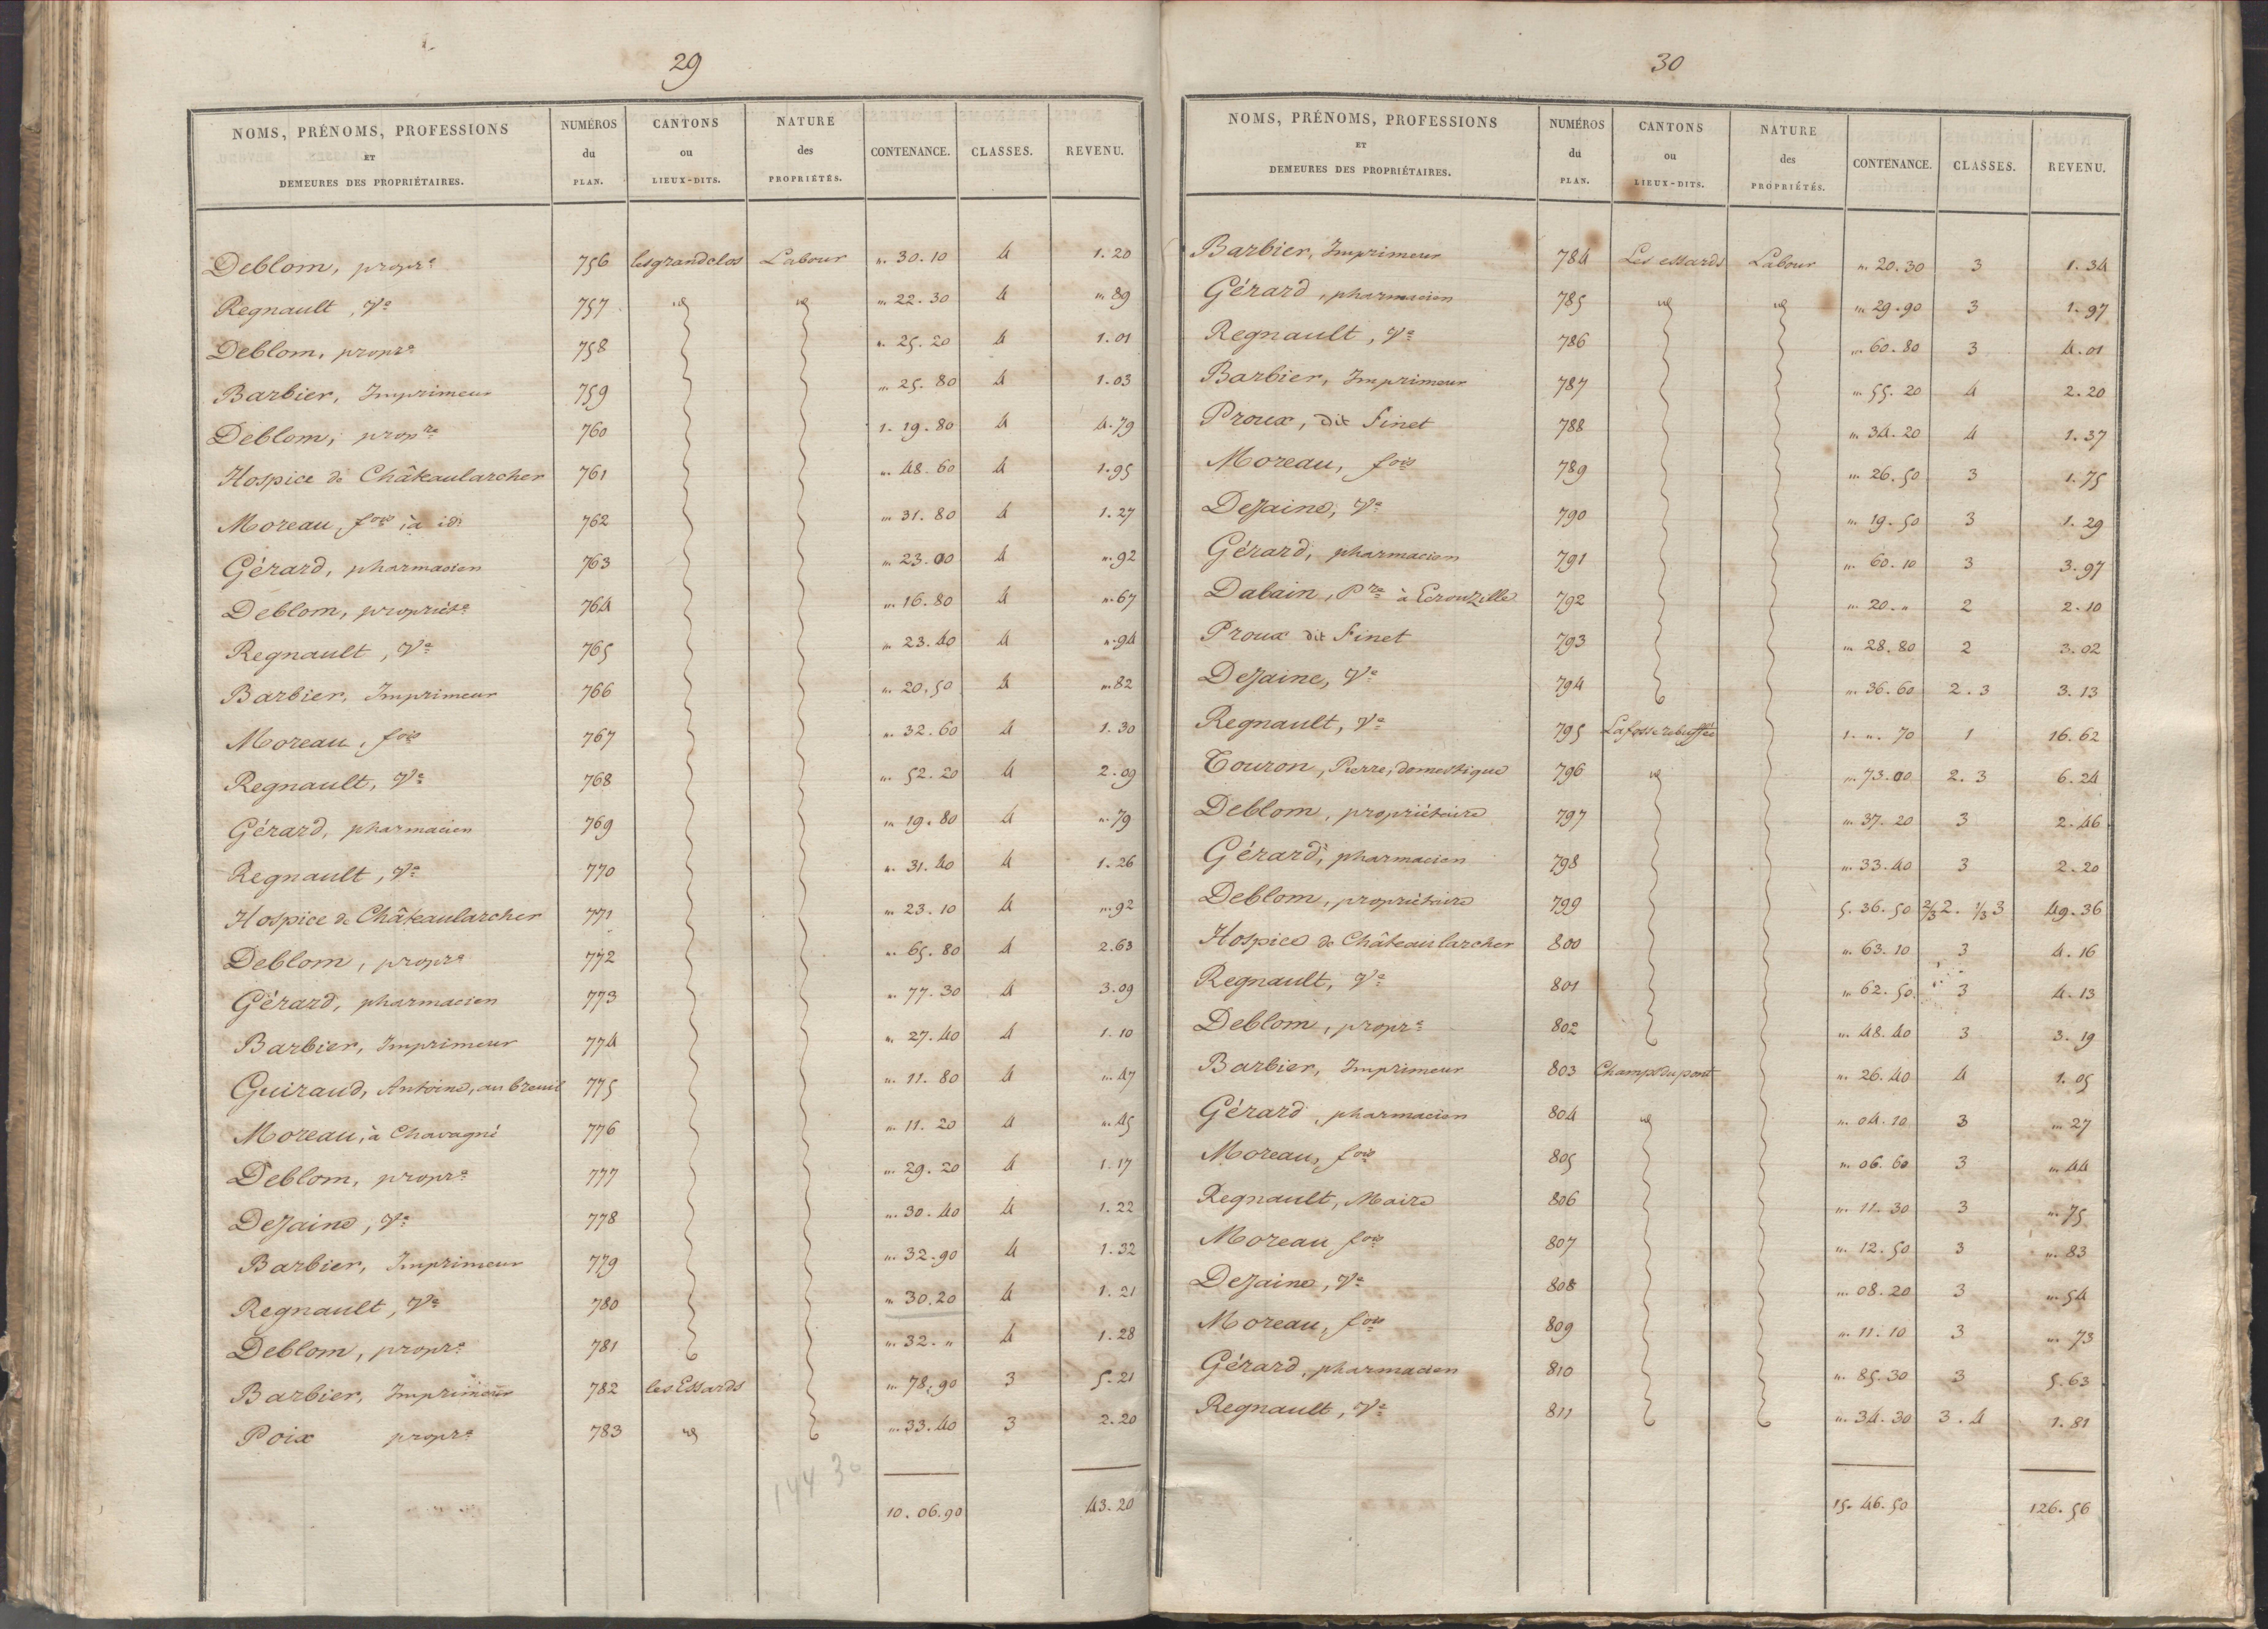 29
NOMS, PRÉNOMS, PROFESSIONS ET DEMEURES DES PROPRIÉTAIRES. | NUMÉROS du PLAN. | CANTONS ou LIEUX-DITS. | NATURE des PROPRIÉTÉS. | CONTENANCE. | CLASSES. | REVENU.
Deblom, propre 756 lesgrandclos Labour „. 30. 10 4 1. 20
Regnault, Ve 757 id id „. 22. 30 4 „. 89
Deblom, propre 758 „. 25. 20 4 1. 01
Barbier, Imprimeur 759 „. 25. 80 4 1. 03
Deblom, propre 760 1. 19. 80 4 4. 79
Hospice de Châteaularcher 761 „. 48. 60 4 1. 95
Moreau, fois à id. 762 „. 31. 80 4 1. 27
Gérard, pharmacien 763 „. 23. 00 4 „. 92
Deblom, propriéte 764 „. 16. 80 4 „. 67
Regnault, Ve 765 „. 23. 40 4 „. 94
Barbier, Imprimeur 766 „. 20. 50 4 „. 82
Moreau, fois 767 „. 32. 60 4 1. 30
Regnault, Ve 768 „. 52. 20 4 2. 09
Gérard, pharmacien 769 „. 19. 80 4 „. 79
Regnault, Ve 770 „. 31. 40 4 1. 26
Hospice de Châteaularcher 771 „. 23. 10 4 „. 92
Deblom, propre 772 „. 65. 80 4 2. 63
Gérard, pharmacien 773 „. 77. 30 4 3. 09
Barbier, Imprimeur 774 „. 27. 40 4 1. 10
Guiraud, Antoine, au breuil 775 „. 11. 80 4 „. 47
Moreau, à Chavagné 776 „. 11. 20 4 „. 45
Deblom, propre 777 „. 29. 20 4 1. 17
Dezaine, Ve 778 „. 30. 40 4 1. 22
Barbier, Imprimeur 779 „. 32. 90 4 1. 32
Regnault, Ve 780 „. 30. 20 4 1. 21
Deblom, propre 781 „. 32. „ 4 1. 28
Barbier, Imprimeur 782 les Essards „. 78. 90 3 5. 21
Poix propre 783 id „. 33. 40 3 2. 20
144 30
10. 06. 90 43. 20
30
NOMS, PRÉNOMS, PROFESSIONS ET DEMEURES DES PROPRIÉTAIRES. | NUMÉROS du PLAN. | CANTONS ou LIEUX-DITS. | NATURE des PROPRIÉTÉS. | CONTENANCE. | CLASSES. | REVENU.
Barbier, Imprimeur 784 Les essards Labour „. 20. 30 3 1. 34
Gérard, pharmacien 785 id id „. 29. 90 3 1. 97
Regnault, Ve 786 „. 60. 80 3 4. 01
Barbier, Imprimeur 787 „. 55. 20 4 2. 20
Proux, dit Finet 788 „. 34. 20 4 1. 37
Moreau, fois 789 „. 26. 50 3 1. 75
Dezaine, Ve 790 „. 19. 50 3 1. 29
Gérard, pharmacien 791 „. 60. 10 3 3. 97
Dabain, Pre à Ecrouzille 792 „. 20. „ 2 2. 10
Proux dit Finet 793 „. 28. 80 2 3. 02
Dezaine, Ve 794 „. 36. 60 2. 3 3. 13
Regnault, Ve 795 Lafosserebuffée 1. „. 70 1 16. 62
Touron, Pierre, domestique 796 id „. 73. 00 2. 3 6. 24
Deblom, propriétaire 797 „. 37. 20 3 2. 46
Gérard, pharmacien 798 „. 33. 40 3 2. 20
Deblom, propriétaire 799 5. 36. 50 2/3 2. 1/3 3 49. 36
Hospice de Châteaularcher 800 „. 63. 10 3 4. 16
Regnault, Ve 801 „. 62. 50 3 4. 13
Deblom, propre 802 „. 48. 40 3 3. 19
Barbier, Imprimeur 803 Champ du pont „. 26. 40 4 1. 05
Gérard, pharmacien 804 id „. 04. 10 3 „. 27
Moreau, fois 805 „. 06. 60 3 „. 44
Regnault, Maire 806 „. 11. 30 3 „. 75
Moreau fois 807 „. 12. 50 3 „. 83
Dezaine, Ve 808 „. 08. 20 3 „. 54
Moreau, fois 809 „. 11. 10 3 „. 73
Gérard, pharmacien 810 „. 85. 30 3 5. 63
Regnault, Ve 811 „. 34. 30 3. 4 1. 81
15. 46. 50 126. 56